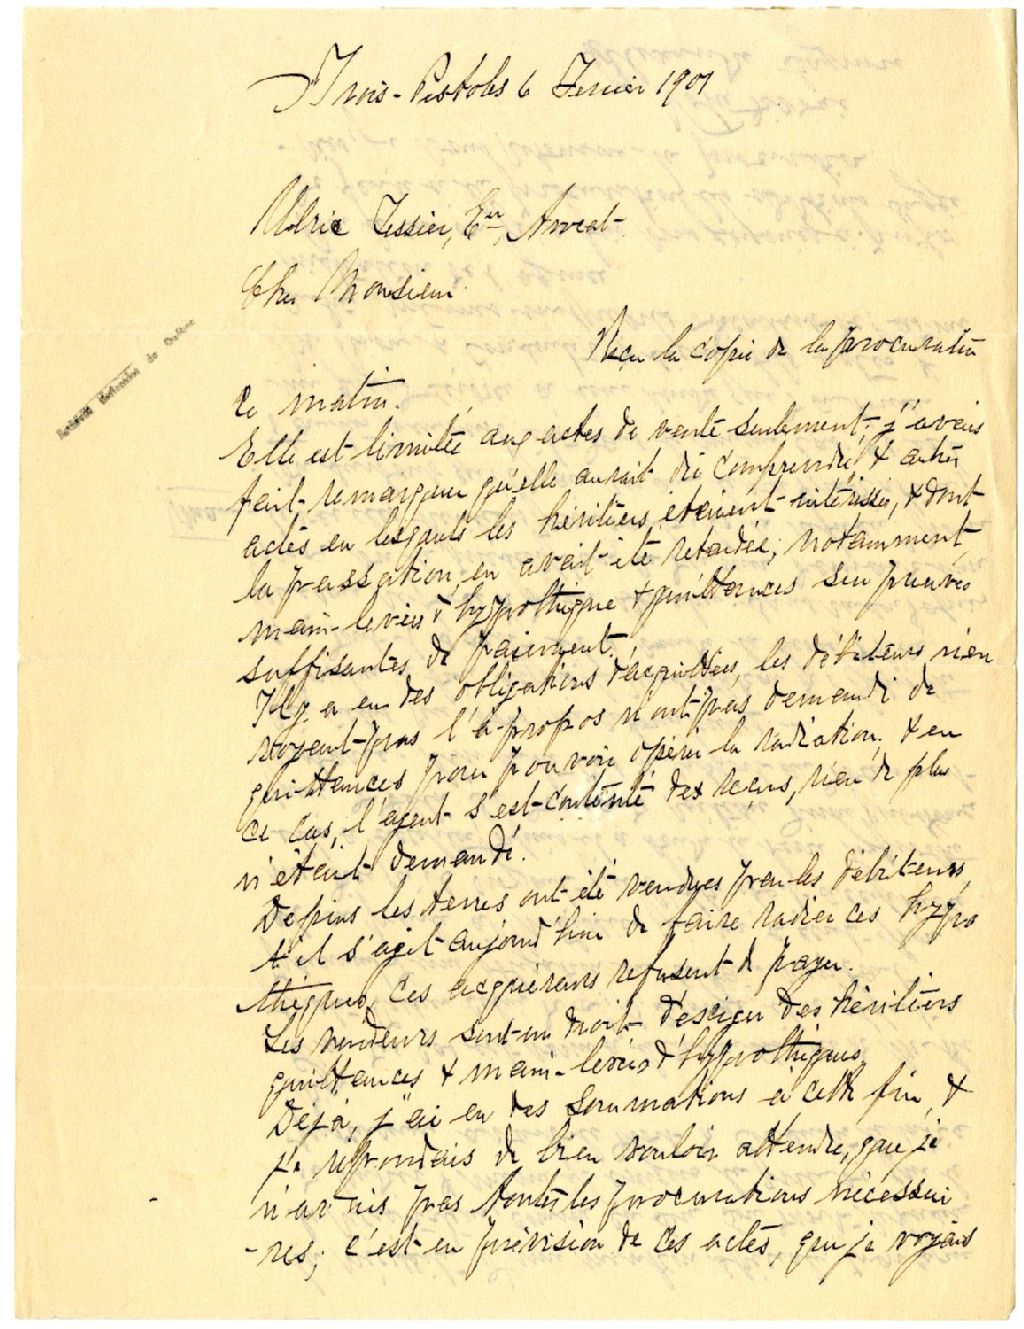 Trois-Pistoles 6 Fevrier 1901
Ulric Tessier, Ecr, Avocat
Cher Monsieur
Reçu la copie de la procuration
ce matin.
Elle est limitée aux actes de vente seulement. j'avais
fait remarquer qu'elle aurait dû comprendre, & autres
actes en lesquels les héritiers étaient intéressés, & dont
la passation, en avait été retardée; notamment
main-levées d'hypothèque & quittances sur preuves
suffisantes de paiement.
Il y a eu des obligations d'acquittées, les débiteurs n'en
voyant pas l'à-propos n'ont pas demandé de
quittances pour pouvoir opérer la radiation, & en
ce cas, l'agent s'est contenté des reçus, rien de plus
n'étant demandé.
Depuis les terres ont été vendues par les débiteurs,
& il s'agit aujourd'hui de faire radier ces hypo
thèques, ces acquéreurs refusent de payer.
Les vendeurs sont en droit d'exiger des héritiers
quittances & main-levées d'hypothèques.
Déjà, j'ai eu des sommations à cette fin, &
je répondais de bien vouloir attendre, que je
n'avais pas toutes les procurations nécessai
-res; c'est en prévision de ces actes, que je voyais
Archives Nationales du Québec